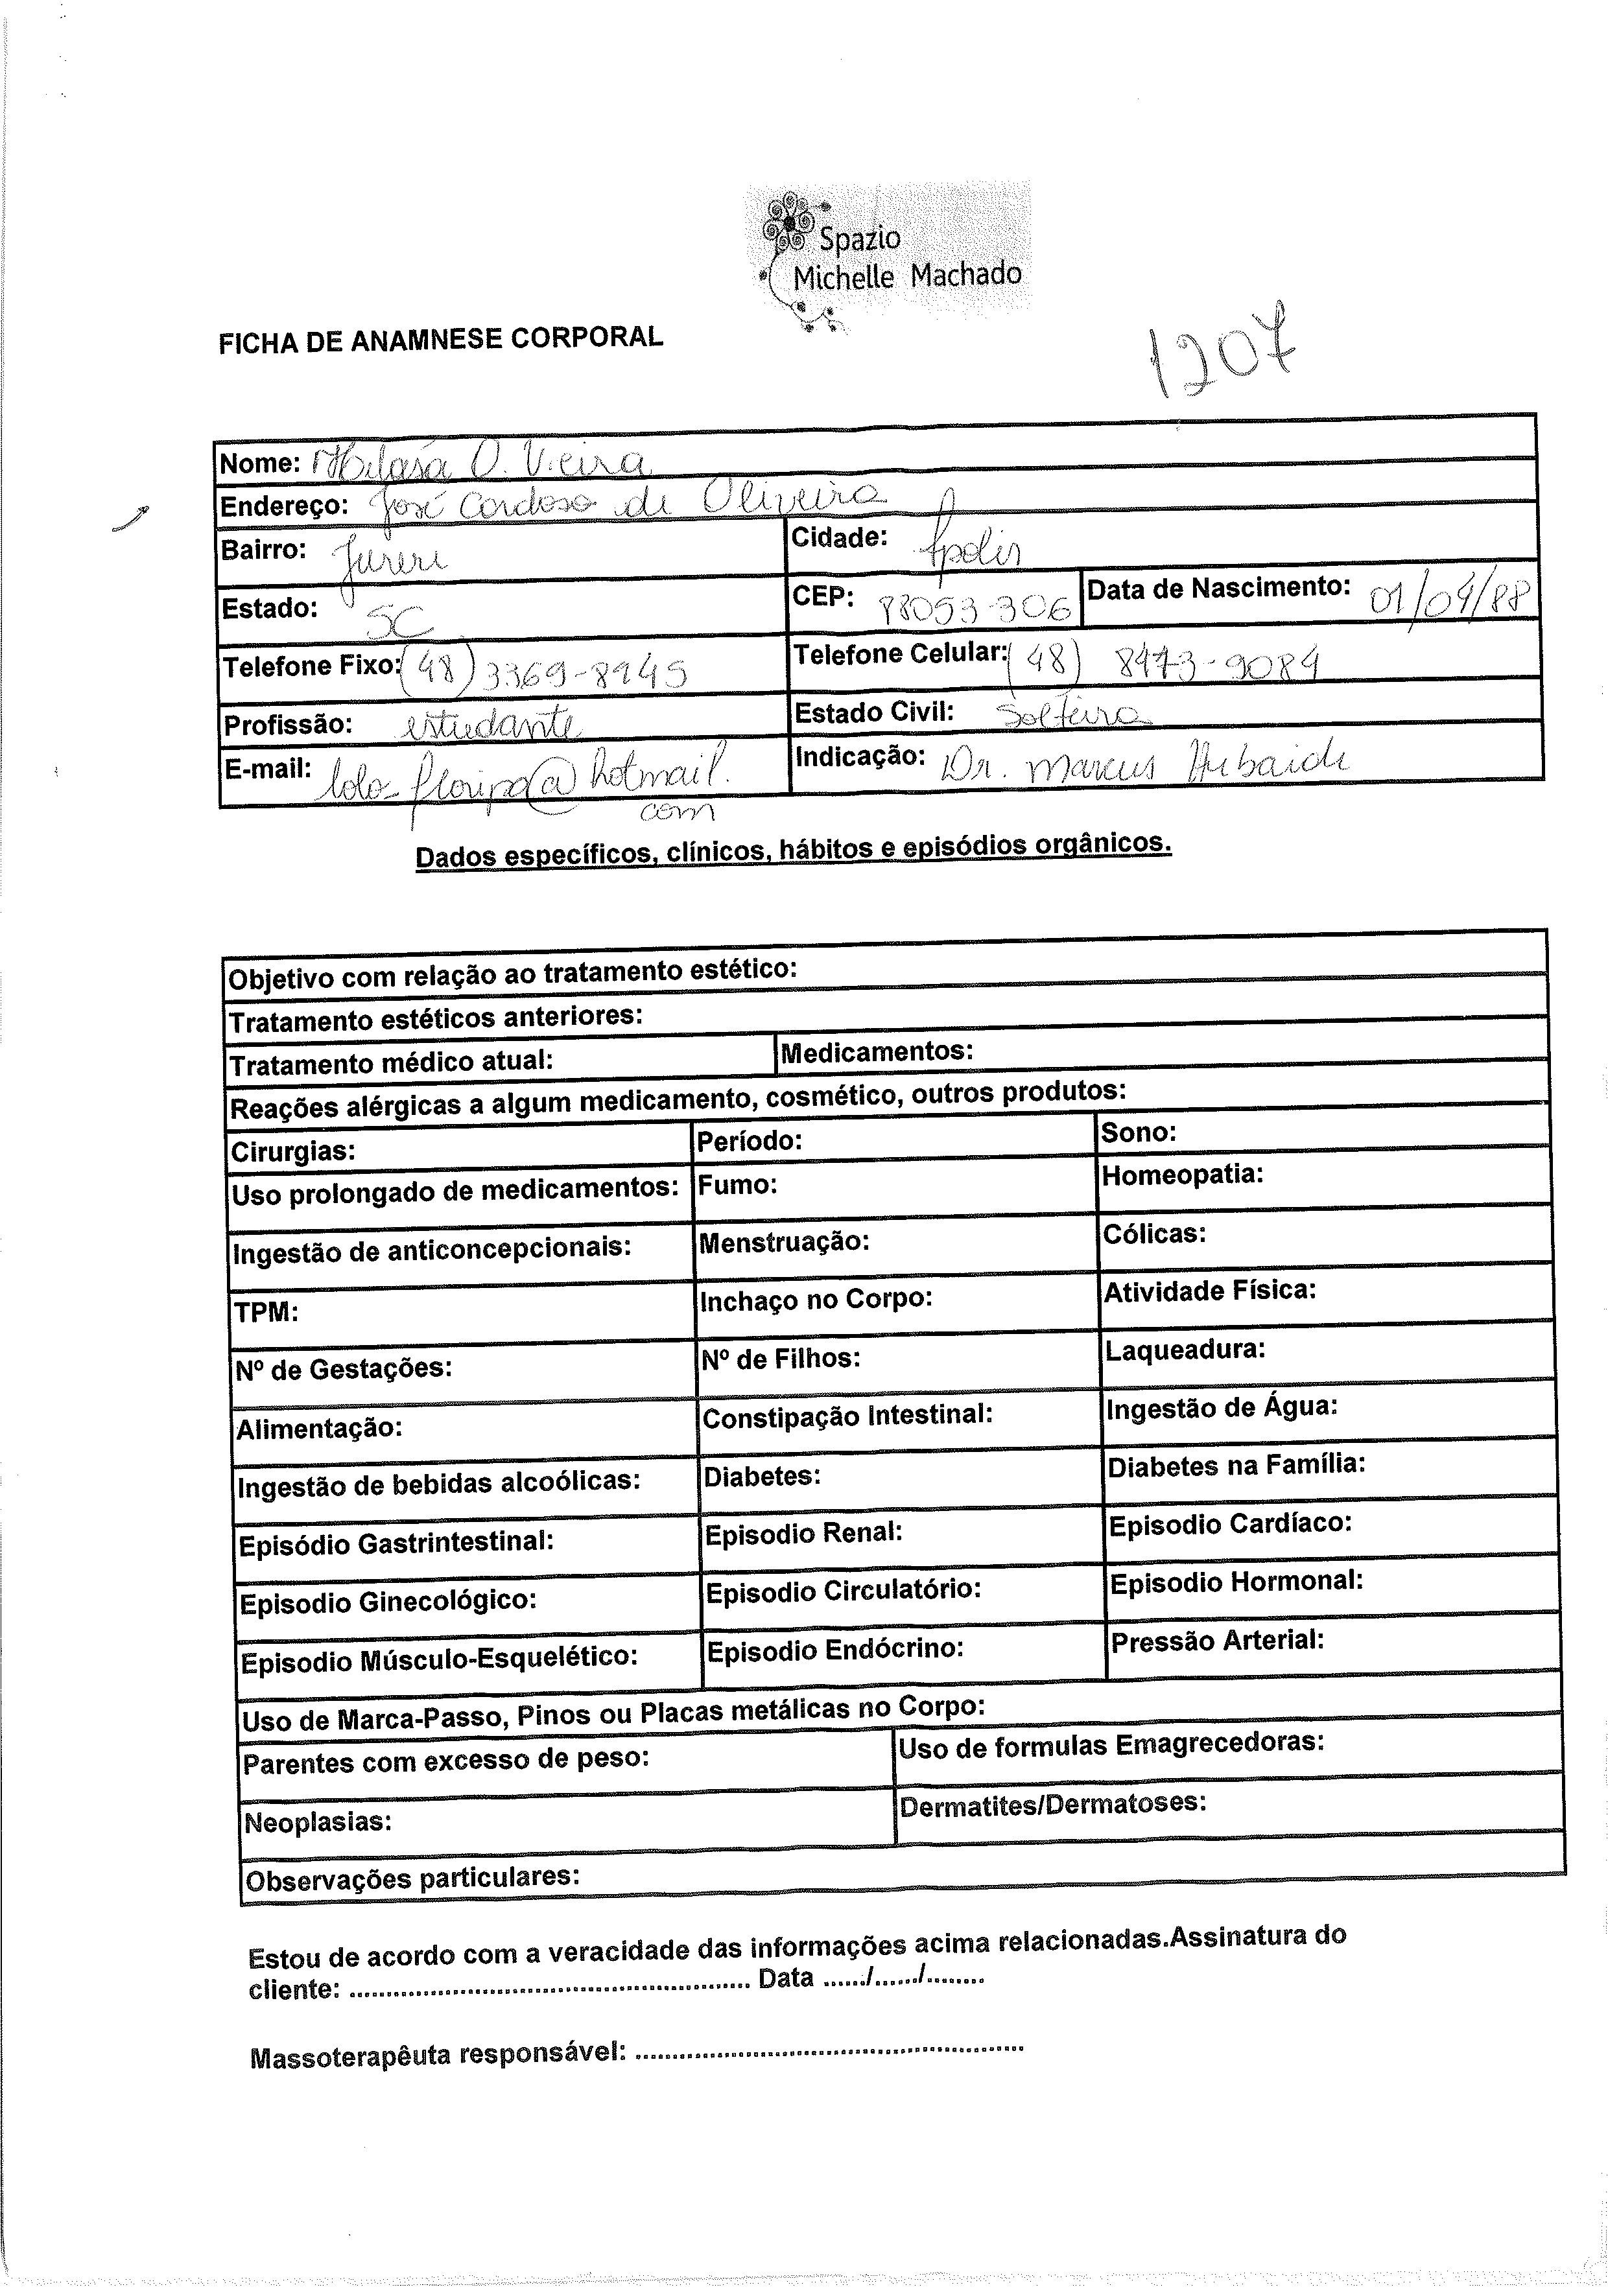 Spazio
Michelle Machado
FICHA DE ANAMNESE CORPORAL
1207
Nome: O. Vieira
Endereço: José Cardoso de Oliveira
Bairro: Jureri Cidade: Fpolis
Estado: SC CEP: 88053-306 Data de Nascimento: 01/04/88
Telefone Fixo: (48) 3369-8945 Telefone Celular: (48) 8473-9084
Profissão: estudante Estado Civil: Solteira
E-mail: lolo_floripa@hotmail. Indicação: Dr. Marcus
com
Dados específicos, clínicos, hábitos e episódios orgânicos.
Objetivo com relação ao tratamento estético:
Tratamento estéticos anteriores:
Tratamento médico atual: Medicamentos:
Reações alérgicas a algum medicamento, cosmético, outros produtos:
Cirurgias: Período: Sono:
Uso prolongado de medicamentos: Fumo: Homeopatia:
Ingestão de anticoncepcionais: Menstruação: Cólicas:
TPM: Inchaço no Corpo: Atividade Física:
Nº de Gestações: Nº de Filhos: Laqueadura:
Alimentação: Constipação Intestinal: Ingestão de Água:
Ingestão de bebidas alcoólicas: Diabetes: Diabetes na Família:
Episódio Gastrintestinal: Episodio Renal: Episodio Cardíaco:
Episodio Ginecológico: Episodio Circulatório: Episodio Hormonal:
Episodio Músculo-Esquelético: Episodio Endócrino: Pressão Arterial:
Uso de Marca-Passo, Pinos ou Placas metálicas no Corpo:
Parentes com excesso de peso: Uso de formulas Emagrecedoras:
Neoplasias: Dermatites/Dermatoses:
Observações particulares:
Estou de acordo com a veracidade das informações acima relacionadas.Assinatura do
cliente: ...................................................... Data ....../....../........
Massoterapêuta responsável: .....................................................